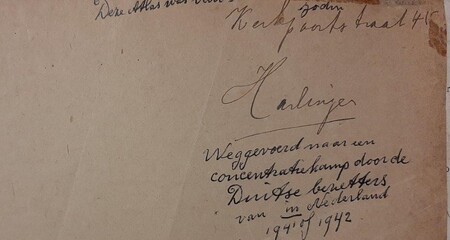 Deze Atlas was van
Jodin
Kerkpoortstraat 45
Harlinger
Weggevoerd naar een
concentratiekamp door de
Duitse bezetters
van in Nederland
1941 of 1942